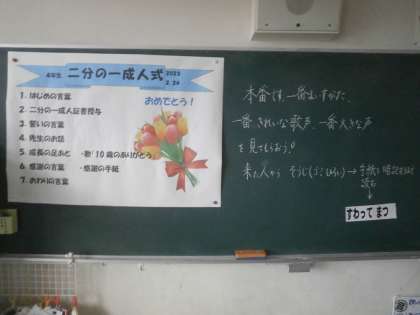 4年生 二分の一成人式 2023 2.24
おめでとう！
1. はじめの言葉
2. 二分の一成人証書授与
3. 誓いの言葉
4. 先生のお話
5. 成長の足あと ・歌「10歳のありがとう
6. 感謝の言葉 ・感謝の手紙
7. おわりの言葉
本番です。一番よいすがた、
一番きれいな歌声、一番大きな声
を見てもらおう！
来た人から そうじ → 手紙
読む
↓
すわってまつ